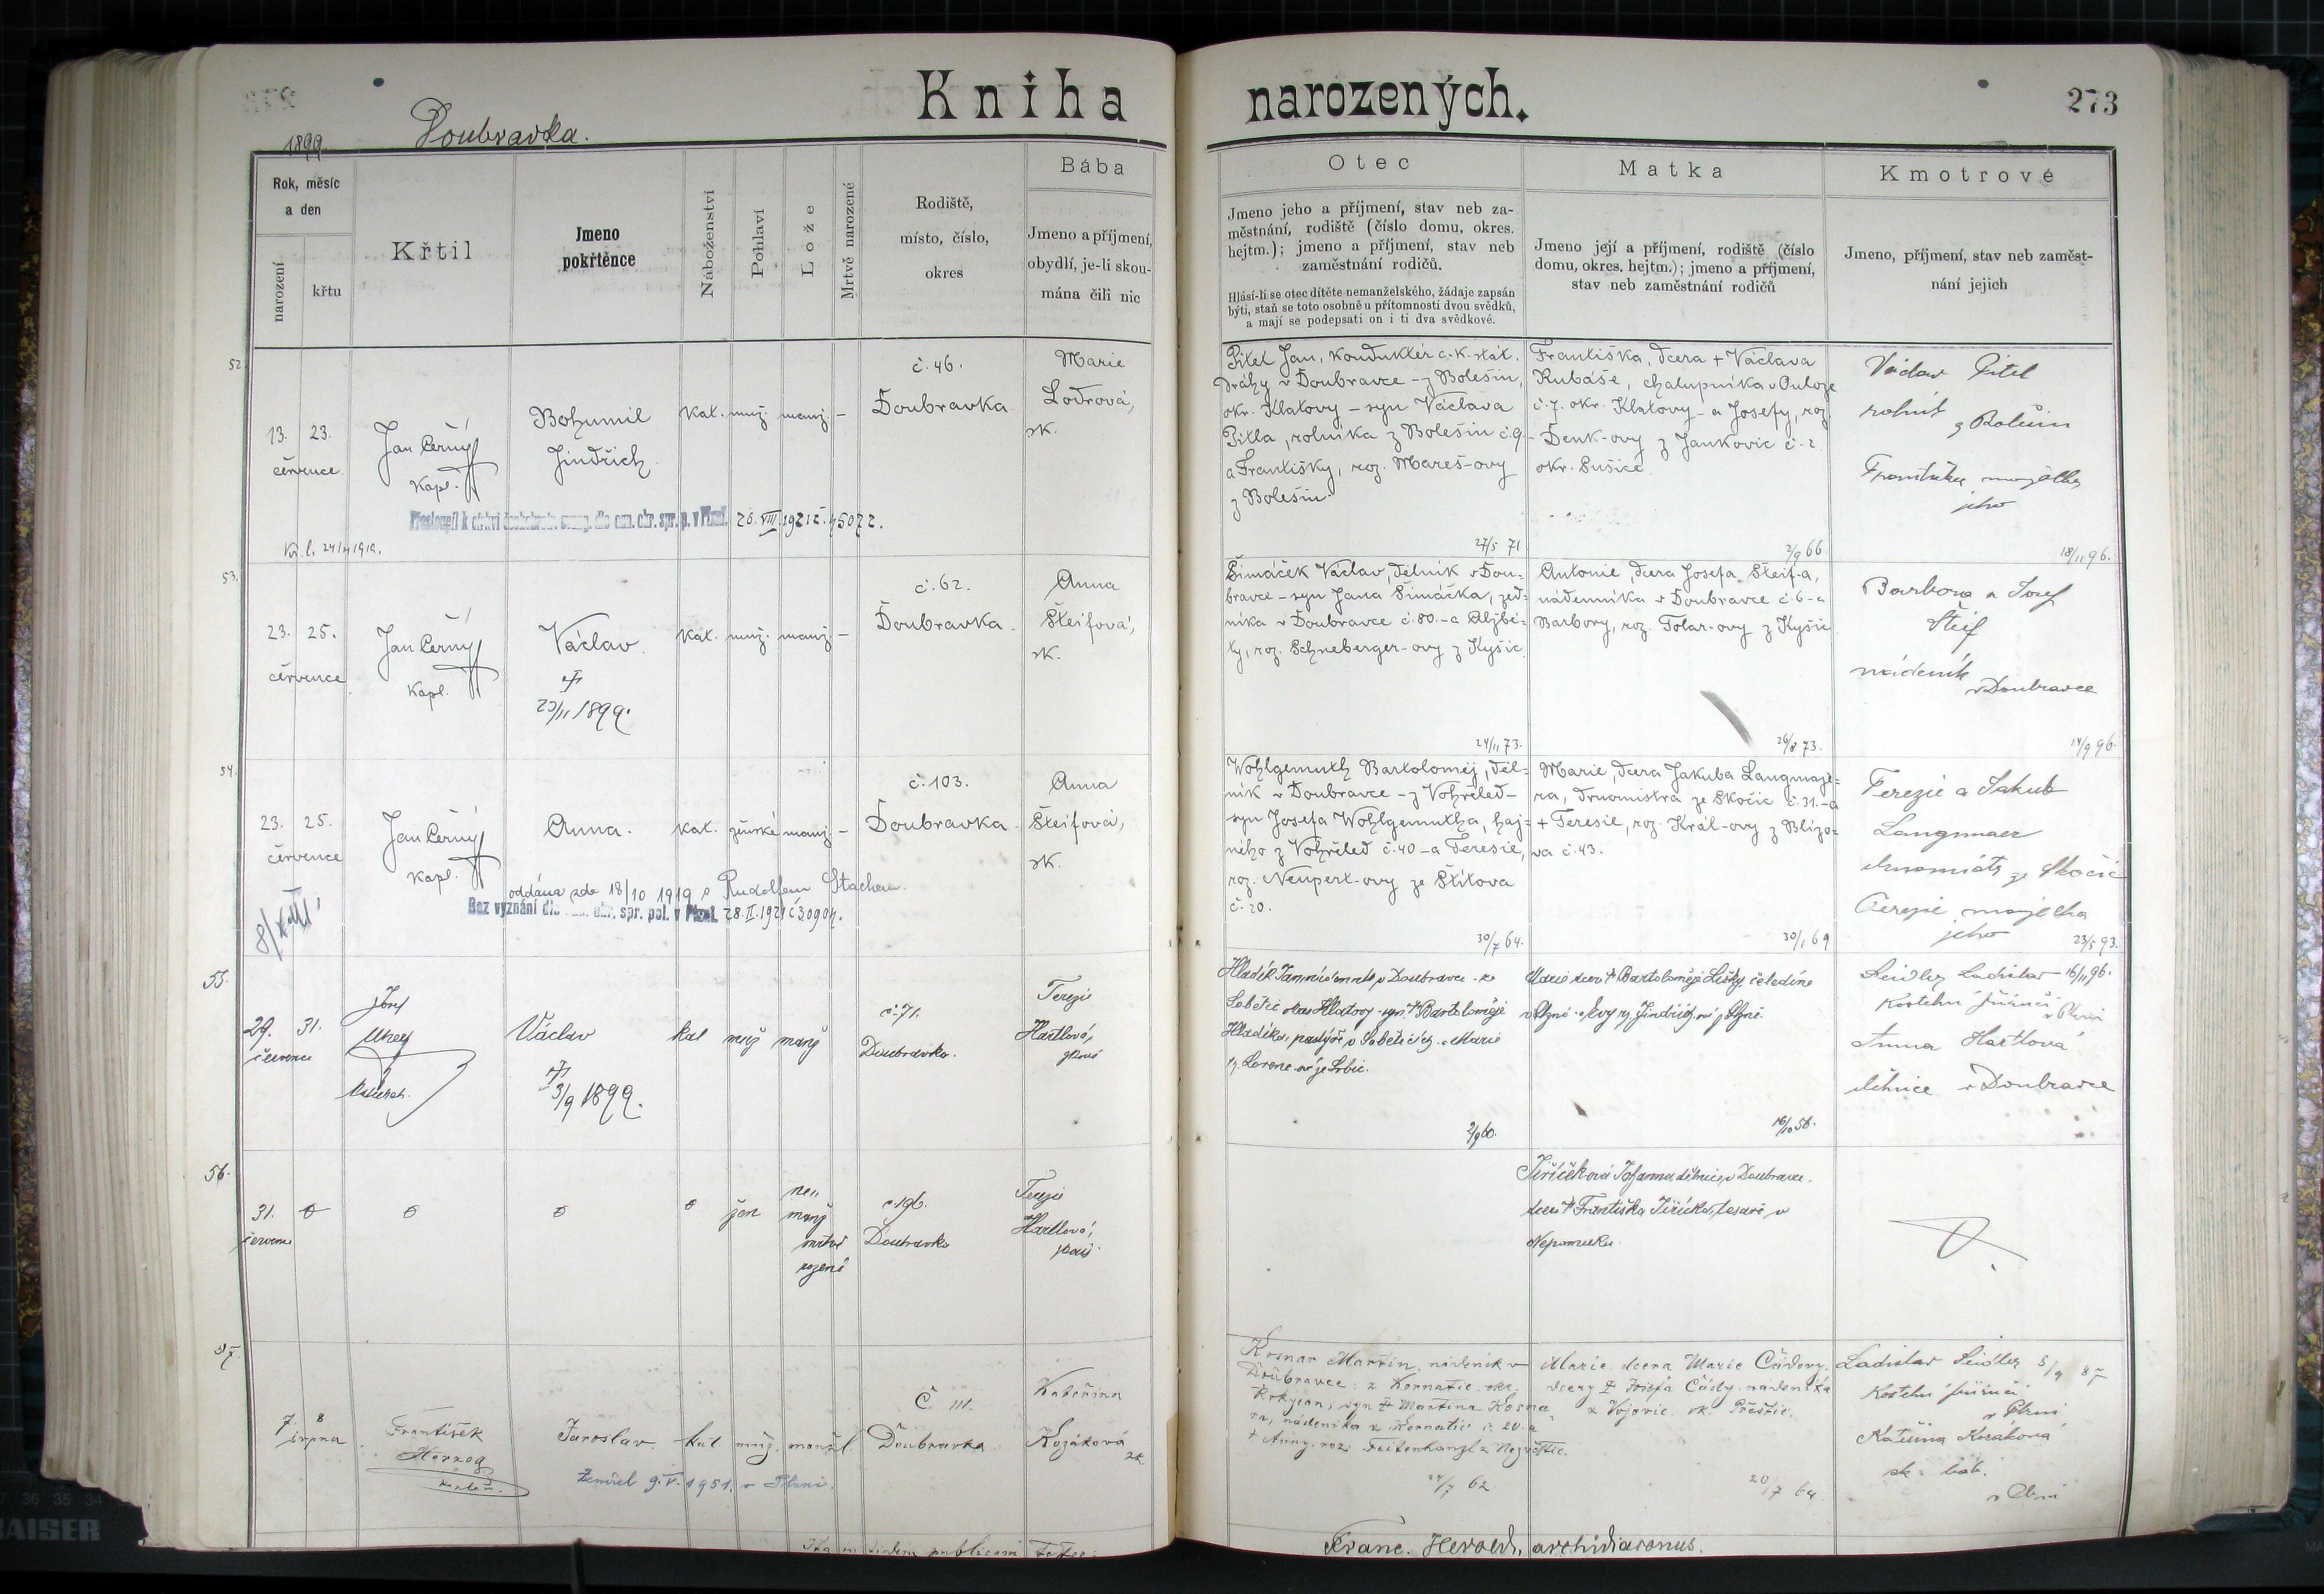 Kniha narozených.
273
1899.
Doubravka.
Rok, měsíc
a den
narození
křtu
Křtil
Jmeno
pokřtěnce
Náboženství
Pohlaví
Lože
Mrtvě narozené
Rodiště,
místo, číslo,
okres
Bába
Jmeno a příjmení,
obydlí, je-li skou-
mána čili nic
Otec
Jmeno jeho a příjmení, stav neb za-
městnání, rodiště (číslo domu, okres.
hejtm.); jmeno a příjmení, stav neb
zaměstnání rodičů.
Hlásí-li se otec dítěte nemanželského, žádaje zapsán
býti, staň se toto osobně u přítomnosti dvou svědků,
a mají se podepsati on i ti dva svědkové.
Matka
Jmeno její a příjmení, rodiště (číslo
domu, okres. hejtm.); jmeno a příjmení,
stav neb zaměstnání rodičů
Kmotrové
Jmeno, příjmení, stav neb zaměst-
nání jejich
52
13. 23.
července
Jan Černý
kapl.
Bohumil
Jindřich
kat. muž. manž. –
č. 46.
Doubravka
Marie
Lodrová,
zk.
Přestoupil k církvi českobratr. evang. dle ozn. okr. spr. p. v Plzni. 26. VIII. 1921 č. 45072.
Kř. l. 24/4 1919.
Pitel Jan, konduktér c. k. stát.
dráhy v Doubravce – z Bolešin,
okr. Klatovy – syn Václava
Pitla, rolníka z Bolešin č. 9.
a Františky, roz. Mareš-ovy
z Bolešin.
27/5 71
Františka, dcera + Václava
Kubáše, chalupníka v
č. 7. okr. Klatovy – a Josefy, roz.
Denk-ovy z Jankovic č. 2
okr. Sušice.
2/9 66.
Václav Pitel
rolník
z Bolešin
Františka manželka
jeho
18/11 96.
53.
23. 25.
července
Jan Černý
kapl.
Václav.
+
23/11 1899.
kat. muž. manž. –
č. 62.
Doubravka.
Anna
Šteifová,
zk.
Šimáček Václav, dělník v Dou-
bravce – syn Jana Šimáčka, zed-
níka v Doubravce č. 80. – a Alžbě-
ty, roz. Schneberger-ovy z Kyšic.
24/11 73.
Antonie, dcera Josefa Šteif-a,
nádenníka v Doubravce č. 6 – a
Barbory, roz. Tolar-ovy z Kyšic.
26/8 73.
Barbora a Josef
Šteif
nádeník
v Doubravce
14/9 96.
54.
23. 25.
července
Jan Černý
kapl.
Anna.
kat. ženské manž. –
č. 103.
Doubravka.
Anna
Šteifová,
zk.
oddána zde 18/10 1919 s Rudolfem Stachem.
Bez vyznání dle ozn. okr. spr. pol. v Plzni. 28. II. 1921 č. 30904.
Wohlgemuth Bartoloměj, děl-
ník v Doubravce – z Vohřeled –
syn Josefa Wohlgemutha, haj-
ného z Vohřeled č. 40 – a Teresie,
roz. Neupert-ovy ze Štítova
č. 20.
30/7 64.
Marie, dcera Jakuba Langmaje-
ra, drnomistra ze Skočic č. 31. – a
+ Teresie, roz. Král-ovy z Blížo-
va č. 43.
30/1 69
Terezie a Jakub
Langmaer
drnomistr ze Skočic
Terezie manželka
jeho
23/5 93.
55.
29. 31.
července
Josef
Václav
+
3/9 1899.
kat muž manž
č. 71.
Doubravka.
Terezie
Hartlová,
Hladík Jan v Doubravce ze
Sobětic okres Klatovy syn + Bartoloměje
Hladíka, pastýře v Soběticích a Marie
rz. Lorenc-ové ze Srbic.
2/9 60.
Marie dcera + Bartoloměje Lišky čeledína
v Plzni a Evy rz. Jindřich-ové z Plzně.
16/10 56.
Seidler Ladislav 16/11 96.
Kostelní
v Plzni
Anna Hartlová
dělnice v Doubravce
56.
31.
července
žen
ne-
manž
mrtvě
rozené
č 196.
Doubravka
Terezie
Hartlová,
Jiříčková Johanna, dělnice v Doubravce.
dcera + Františka Jiříčka, tesaře v
Nepomuku.
57.
7. 8
srpna
František
Herzog
kaplan.
Jaroslav.
kat muž. manžel.
Č. 111.
Doubravka
Kateřina
Kozáková
zk.
Zemřel 9. V. 1951. v Plzni.
Kosnar Martin, nádeník v
Doubravce z Kornatic okr.
Rokycan, syn + Martina Kosna-
ra, nádeníka z Kornatic č. 20. a
+ Anny roz. Feitenhanzl z Nezvěstic.
24/7 62
Marie dcera Marie Čádovy
dcery + Josefa Čády nádeníka
z Vojovic ok. Přeštic.
20/7 64
Ladislav Seidler 5/9 85
Kostelní
v Plzni
Kateřina Kozáková
zk. báb.
v Plzni
Franc. Herold, archidiaconus.